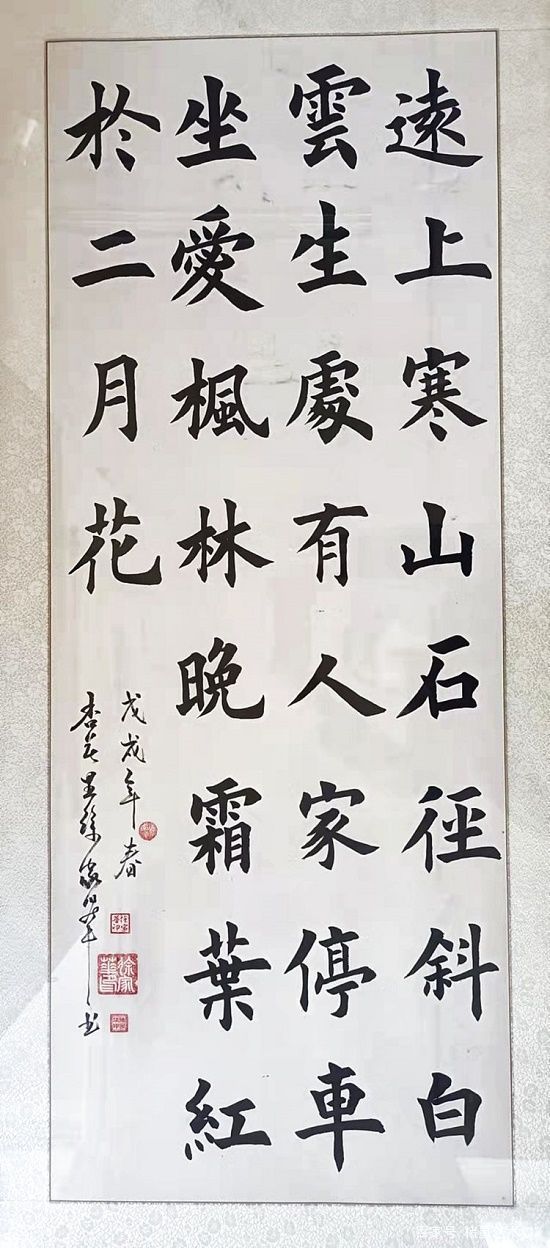 遠上寒山石徑斜白
雲生處有人家停車
坐愛楓林晚霜葉紅
於二月花
戊戌年春
杏花里徐家華书